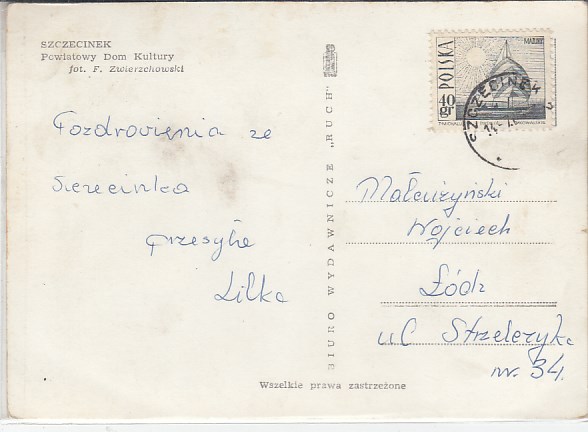 SZCZECINEK
Powiatowy Dom Kultury
fot. F. Zwierzchowski
Pozdrowienia ze
Szczecinka
przesyła
Lilka
BIURO WYDAWNICZE „RUCH”
Wszelkie prawa zastrzeżone
POLSKA
MAZURY
40 gr
SZCZECINEK
Małcużyński
Wojciech
Łódź
ul Strzelczyka
nr. 34.